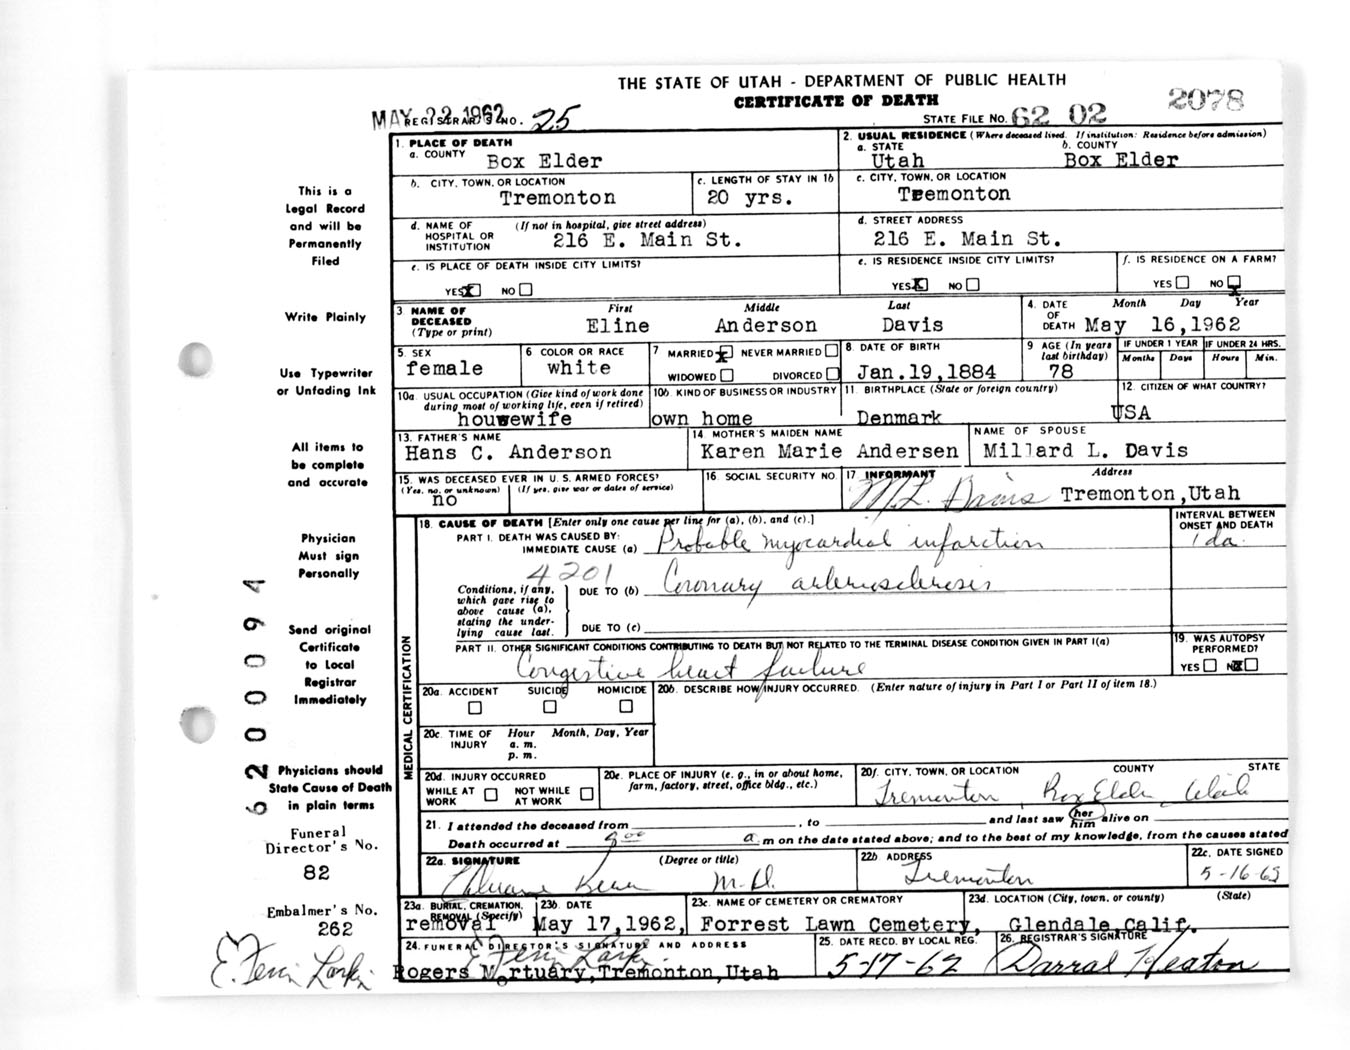 THE STATE OF UTAH - DEPARTMENT OF PUBLIC HEALTH
CERTIFICATE OF DEATH
2078
MAY 22 1962
REGISTRAR'S NO. 25
STATE FILE NO. 62 02
1. PLACE OF DEATH
a. COUNTY Box Elder
2. USUAL RESIDENCE (Where deceased lived. If institution: Residence before admission)
a. STATE Utah b. COUNTY Box Elder
b. CITY, TOWN, OR LOCATION Tremonton
c. LENGTH OF STAY IN 1b 20 yrs.
c. CITY, TOWN, OR LOCATION Tremonton
d. NAME OF HOSPITAL OR INSTITUTION (If not in hospital, give street address) 216 E. Main St.
d. STREET ADDRESS 216 E. Main St.
e. IS PLACE OF DEATH INSIDE CITY LIMITS? YES NO
e. IS RESIDENCE INSIDE CITY LIMITS? YES NO
f. IS RESIDENCE ON A FARM? YES NO
3 NAME OF DECEASED (Type or print) First Eline Middle Anderson Last Davis
4. DATE OF DEATH Month Day Year May 16,1962
5. SEX female
6 COLOR OR RACE white
7 MARRIED NEVER MARRIED WIDOWED DIVORCED
8 DATE OF BIRTH Jan.19,1884
9 AGE (In years last birthday) 78
IF UNDER 1 YEAR Months Days
IF UNDER 24 HRS. Hours Min.
10a. USUAL OCCUPATION (Give kind of work done during most of working life, even if retired) housewife
10b. KIND OF BUSINESS OR INDUSTRY own home
11. BIRTHPLACE (State or foreign country) Denmark
12. CITIZEN OF WHAT COUNTRY? USA
13. FATHER'S NAME Hans C. Anderson
14. MOTHER'S MAIDEN NAME Karen Marie Andersen
NAME OF SPOUSE Millard L. Davis
15. WAS DECEASED EVER IN U.S. ARMED FORCES? (Yes, no, or unknown) (If yes, give war or dates of service) no
16. SOCIAL SECURITY NO.
17 INFORMANT M. L. Davis Address Tremonton,Utah
18. CAUSE OF DEATH [Enter only one cause per line for (a), (b), and (c).]
INTERVAL BETWEEN ONSET AND DEATH
PART I. DEATH WAS CAUSED BY:
IMMEDIATE CAUSE (a) Probable myocardial infarction 1 da.
4201
Conditions, if any, which gave rise to above cause (a), stating the underlying cause last.
DUE TO (b) Coronary arteriosclerosis
DUE TO (c)
PART II. OTHER SIGNIFICANT CONDITIONS CONTRIBUTING TO DEATH BUT NOT RELATED TO THE TERMINAL DISEASE CONDITION GIVEN IN PART I(a)
Congestive heart failure
19. WAS AUTOPSY PERFORMED? YES NO
MEDICAL CERTIFICATION
20a. ACCIDENT SUICIDE HOMICIDE
20b. DESCRIBE HOW INJURY OCCURRED. (Enter nature of injury in Part I or Part II of item 18.)
20c. TIME OF INJURY Hour a. m. p. m. Month, Day, Year
20d. INJURY OCCURRED WHILE AT WORK NOT WHILE AT WORK
20e. PLACE OF INJURY (e. g., in or about home, farm, factory, street, office bldg., etc.)
20f. CITY, TOWN, OR LOCATION COUNTY STATE
Tremonton Box Elder Utah
21. I attended the deceased from , to and last saw her him alive on
Death occurred at 9 00 a m on the date stated above; and to the best of my knowledge, from the causes stated
22a. SIGNATURE (Degree or title) M.D.
22b ADDRESS Tremonton
22c. DATE SIGNED 5-16-62
23a. BURIAL, CREMATION, REMOVAL (Specify) removal
23b. DATE May 17,1962,
23c. NAME OF CEMETERY OR CREMATORY Forrest Lawn Cemetery,
23d. LOCATION (City, town, or county) (State) Glendale,Calif.
24. FUNERAL DIRECTOR'S SIGNATURE AND ADDRESS
E. Ferrin Larkin
Rogers Mortuary,Tremonton,Utah
25. DATE RECD. BY LOCAL REG. 5-17-62
26. REGISTRAR'S SIGNATURE Darral Heaton
This is a
Legal Record
and will be
Permanently
Filed
Write Plainly
Use Typewriter
or Unfading Ink
All items to
be complete
and accurate
Physician
Must sign
Personally
Send original
Certificate
to Local
Registrar
Immediately
Physicians should
State Cause of Death
in plain terms
Funeral
Director's No.
82
Embalmer's No.
262
E. Ferrin Larkin
62000094